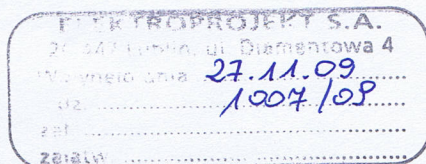 ELEKTROPROJEKT S.A.
20-447 Lublin, ul. Diamentowa 4
Wpłynęło dnia 27.11.09
Ldz. 1007/09
zał.
załatw.